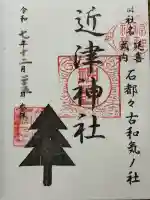 旧社名 延喜式内 石都々古和気ノ社
近津神社
令和七年十二月 参拝